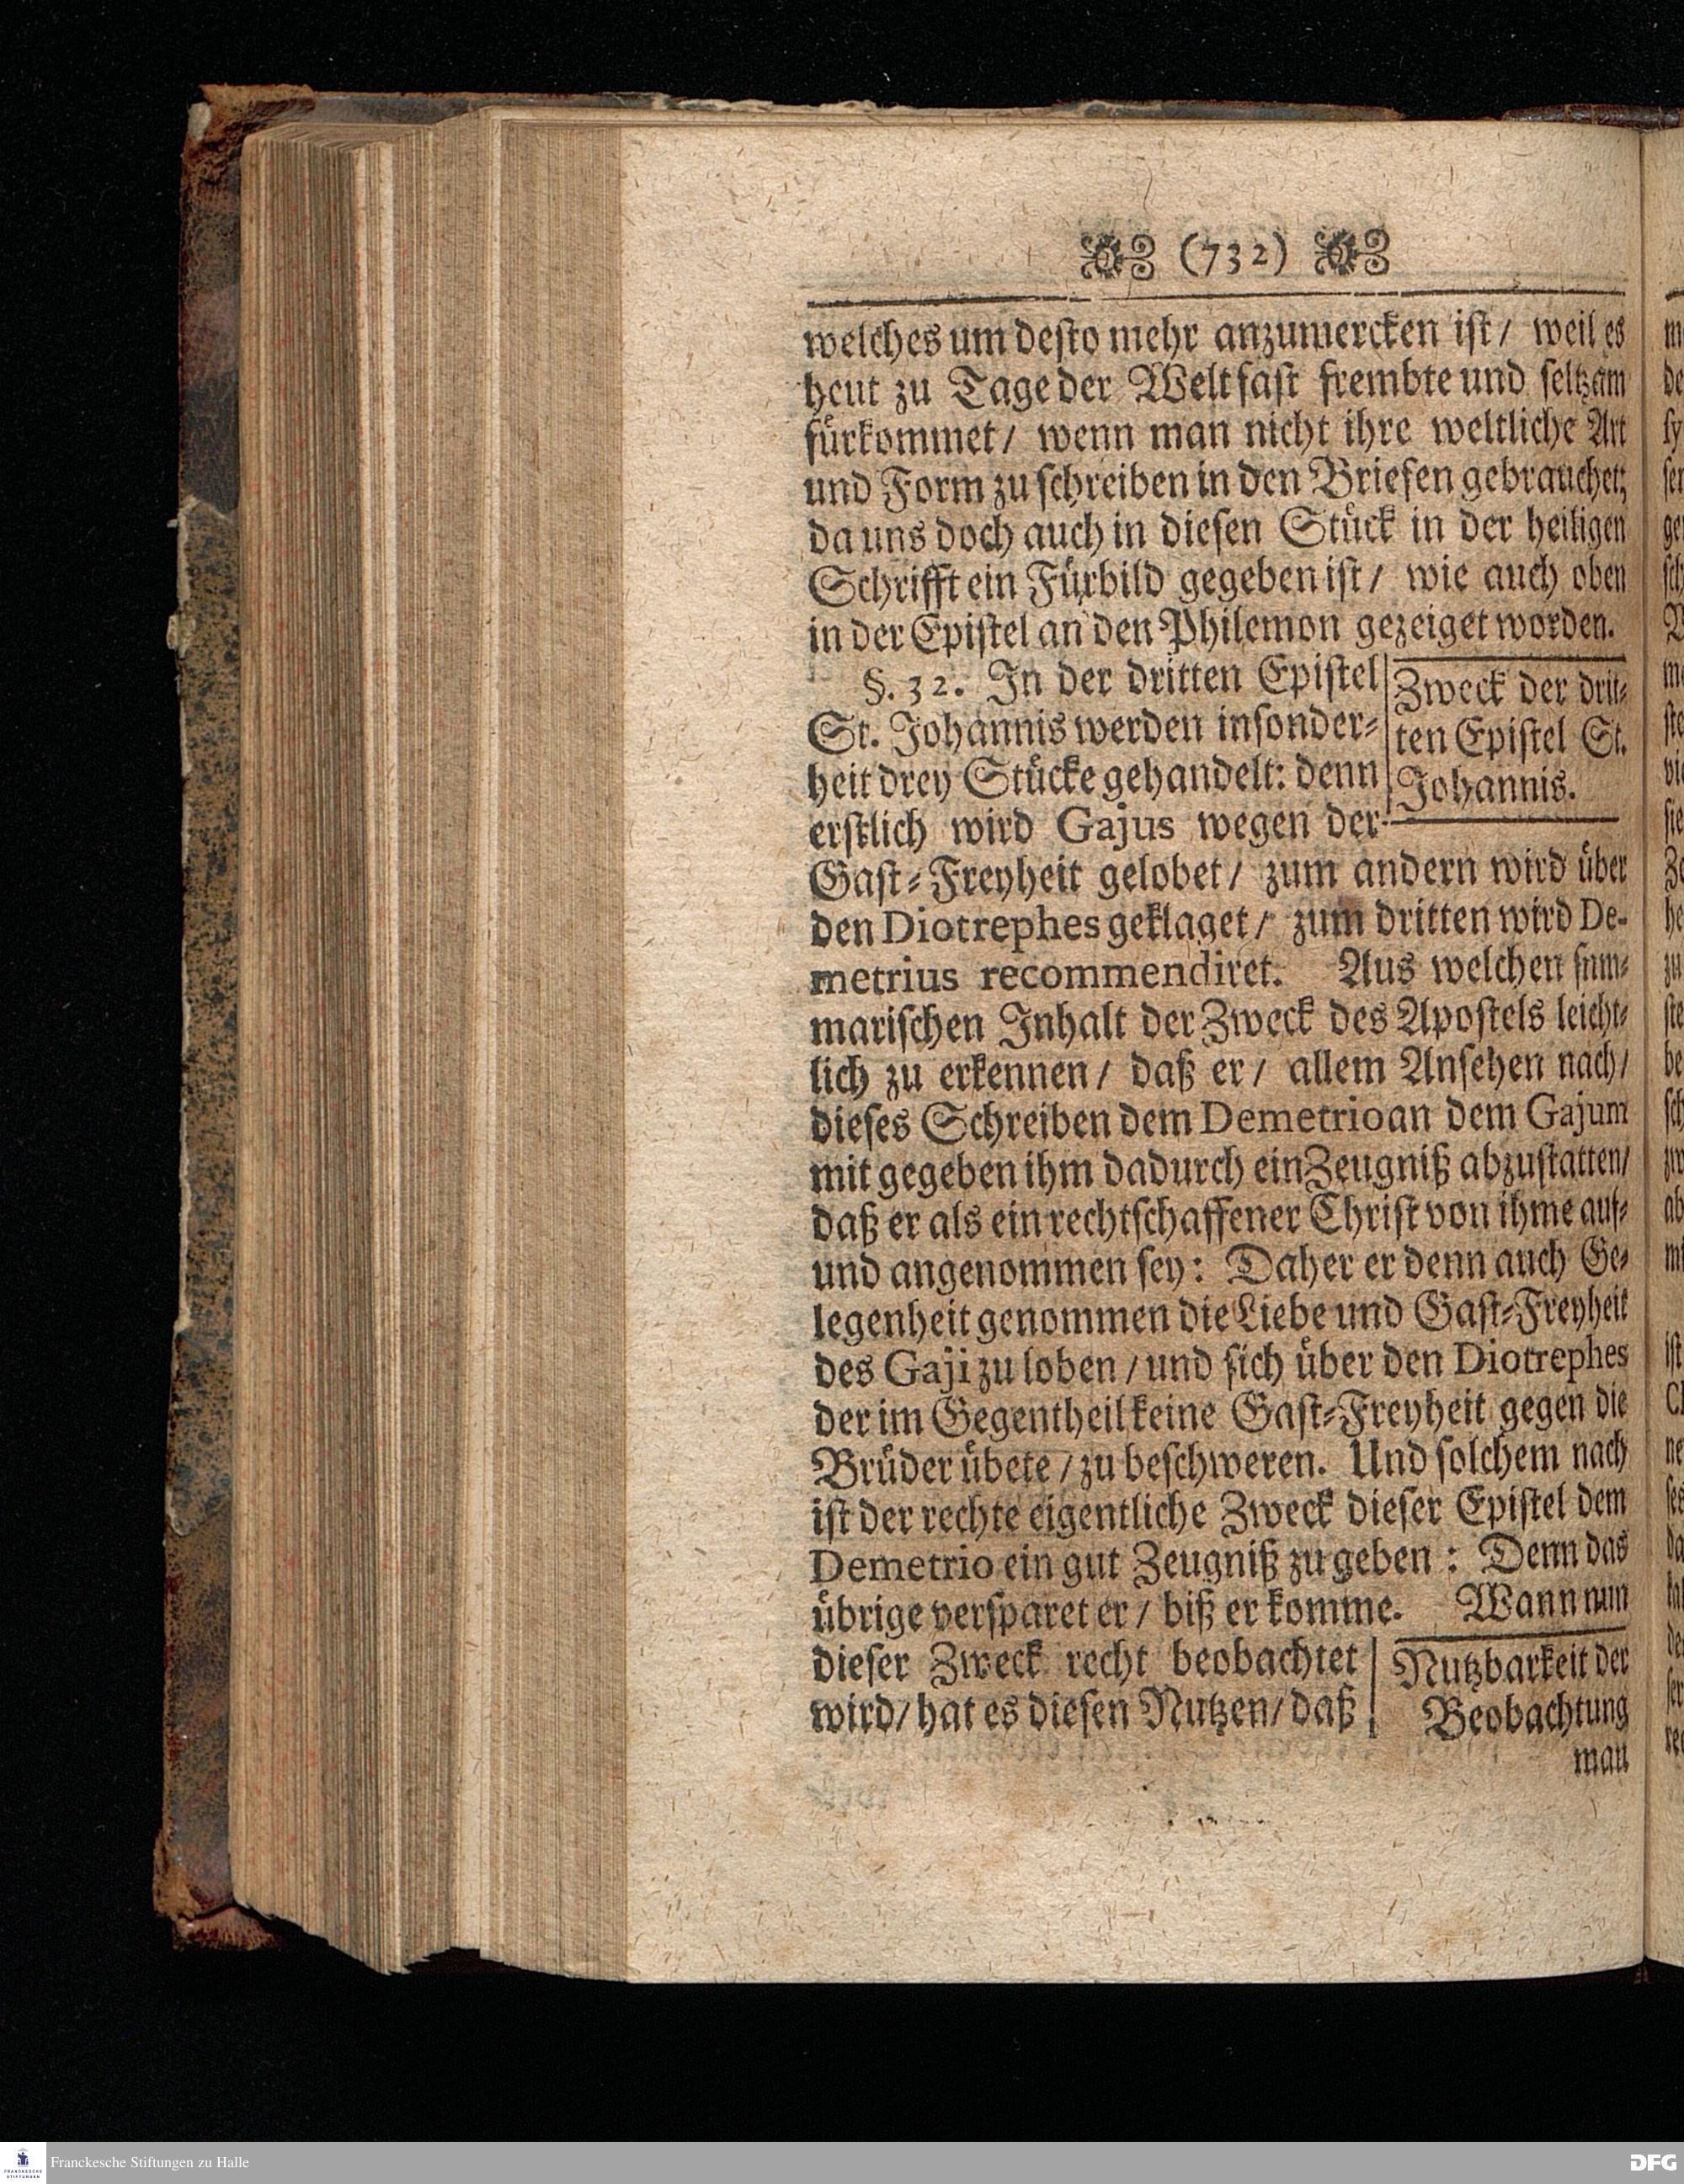 (732)
welches um desto mehr anzumercken ist/ weil es
heut zu Tage der Welt fast frembte und seltzam
fürkommet/ wenn man nicht ihre weltliche Art
und Form zu schreiben in den Briefen gebrauchet;
da uns doch auch in diesen Stück in der heiligen
Schrifft ein Fürbild gegeben ist/ wie auch oben
in der Epistel an den Philemon gezeiget worden.
§. 32. In der dritten Epistel
St. Johannis werden insonder-
heit drey Stücke gehandelt: denn
erstlich wird Gajus wegen der
Zweck der drit-
ten Epistel St.
Johannis.
Gast-Freyheit gelobet/ zum andern wird über
den Diotrephes geklaget/ zum dritten wird De-
metrius recommendiret. Aus welchen sum-
marischen Inhalt der Zweck des Apostels leicht-
lich zu erkennen/ daß er/ allem Ansehen nach/
dieses Schreiben dem Demetrio an dem Gajum
mit gegeben ihm dadurch ein Zeugniß abzustatten/
daß er als ein rechtschaffener Christ von ihme auf-
und angenommen sey: Daher er denn auch Ge-
legenheit genommen die Liebe und Gast-Freyheit
des Gaji zu loben/ und sich über den Diotrephes
der im Gegentheil keine Gast-Freyheit gegen die
Brüder übete/ zu beschweren. Und solchem nach
ist der rechte eigentliche Zweck dieser Epistel dem
Demetrio ein gut Zeugniß zu geben: Denn das
übrige versparet er/ biß er komme. Wann nun
dieser Zweck recht beobachtet
wird/ hat es diesen Nutzen/ daß
Nutzbarkeit der
Beobachtung
man
Franckesche Stiftungen zu Halle
DFG